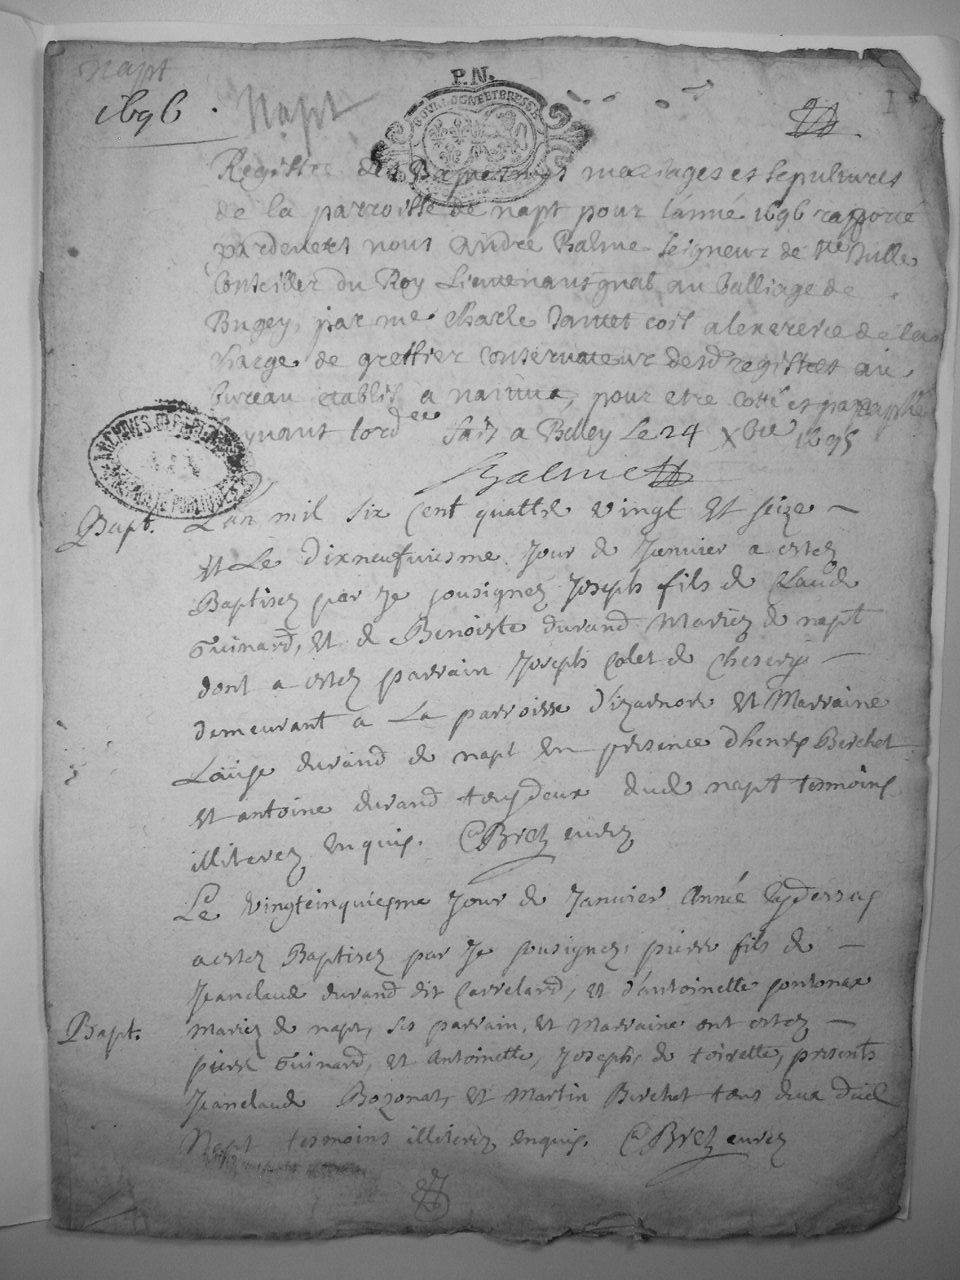 Napt
1696.
Napt
P.N.
I
BOURGOGNE ET BRESSE
Registre des Baptesmes mariages et sepultures
de la parroisse de napt pour lannée 1696 rapporté
pardevers nous André Balme seigneur de
Conseiller du Roy Lieutenant gnal au balliage de
Bugey, par me Charle commis a lexercice de la
charge de greffier conservateur desd registres au
bureau establis a nantua, pour etre cotté et paraphé
suyvant lord fait a Belley Le 24 Xbre 1695
Balme
ARCHIVES
Bapt.
L'an mil six Cent quattre vingt et seize
et Le dixneufuiesme Jour de Januier a estez
Baptisez par Je sousignez Joseph fils de Claude
Guinard, et de Benoiste durand Mariez de napt
dont a estez parrain Joseph Colet de Chesery
demeurant a La parroisse d'izarnore et Marraine
Louise durand de napt en presence dhenry Berchet
et antoine durand tous deux dud napt tesmoins
illiterez enquis. Bret curez
Le vingtcinquiesme Jour de Januier Année cy dessus
a estez Baptisez par Je sousignez, pierre fils de
Jeanclaude durand dit Carreland, et d'antoinette ponthonax
Bapt.
Mariez de napt, ses parrain, et Marraine ont estez
pierre Guinard, et Antoinette, Joseph, de toirette, presents
Jeanclaude Bozonat, et Martin Berchet tous deux dud
Napt tesmoins illiterez enquis. Bret curez